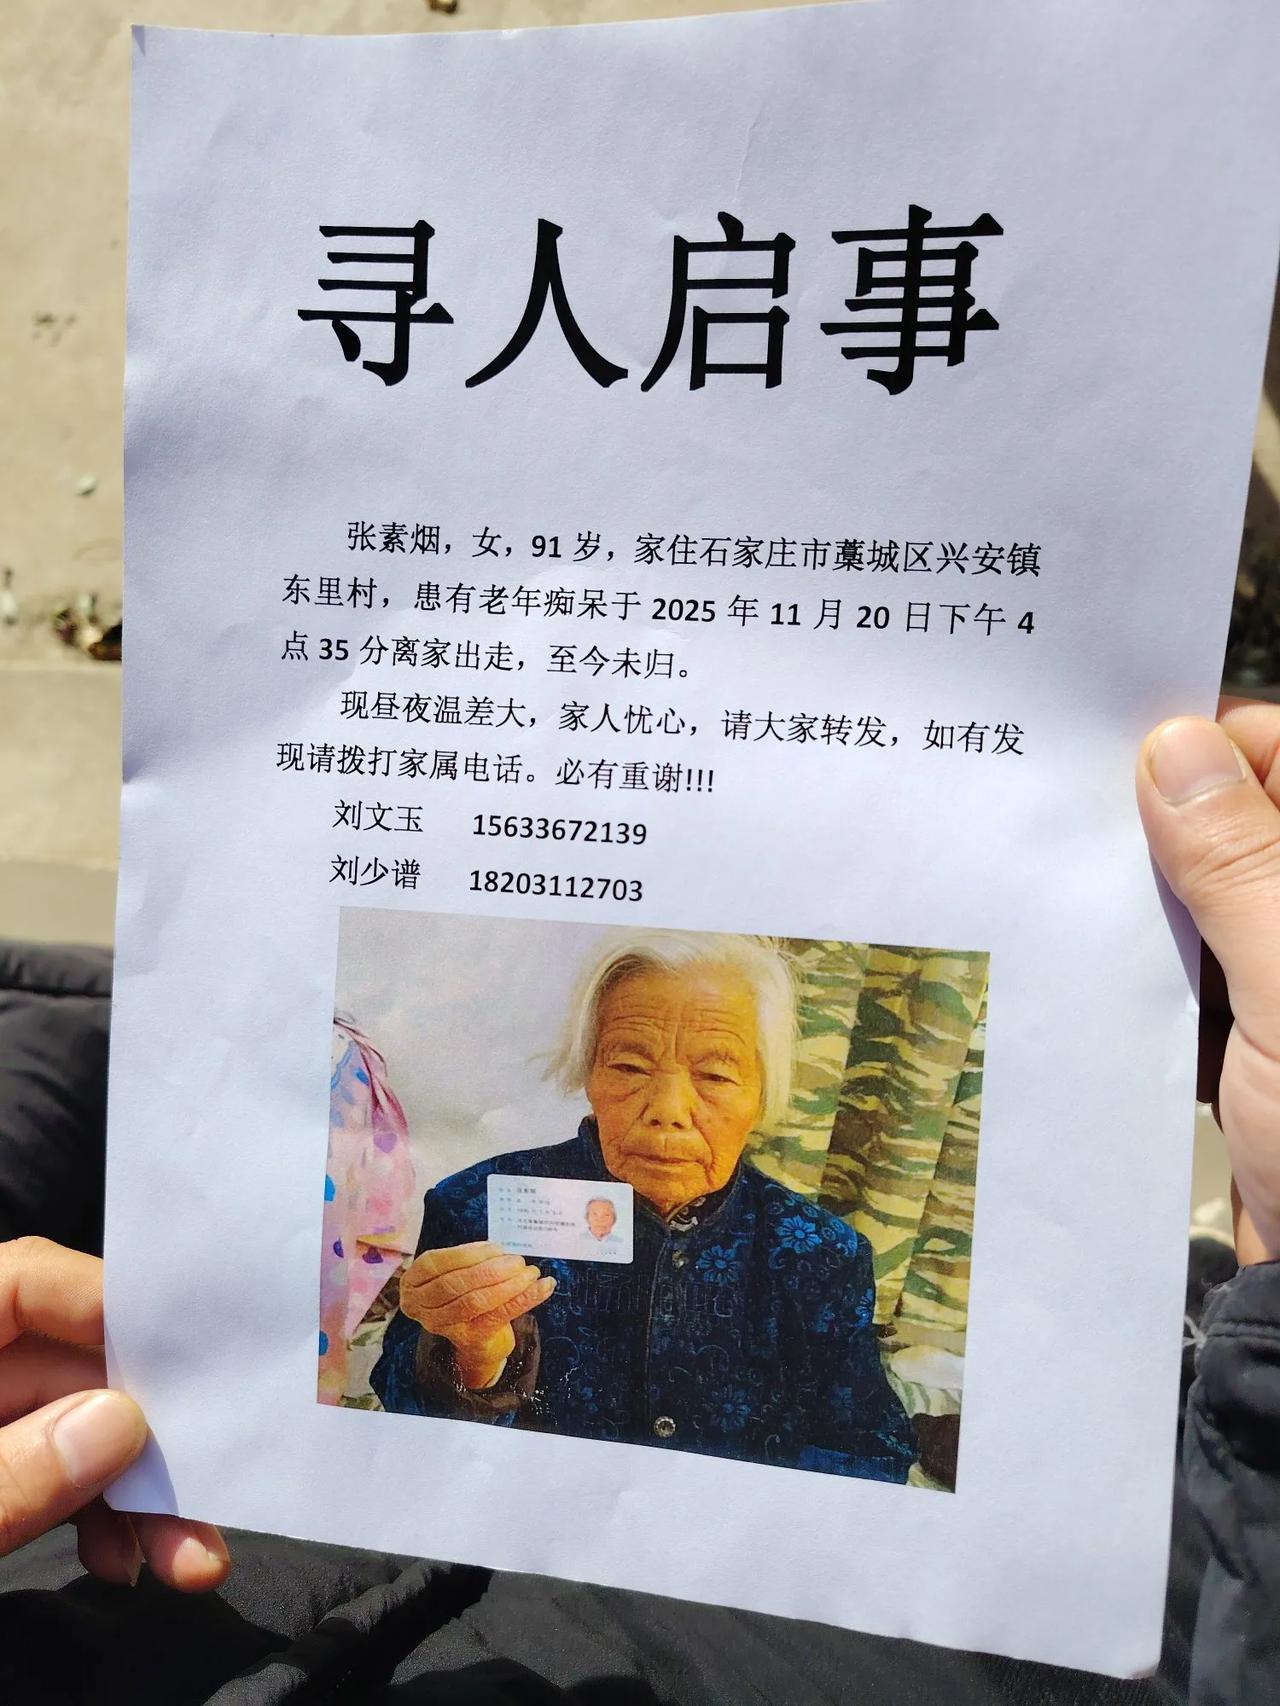 寻人启事
张素烟，女，91 岁，家住石家庄市藁城区兴安镇
东里村，患有老年痴呆于 2025 年 11 月 20 日下午 4
点 35 分离家出走，至今未归。
现昼夜温差大，家人忧心，请大家转发，如有发
现请拨打家属电话。必有重谢!!!
刘文玉 15633672139
刘少谱 18203112703